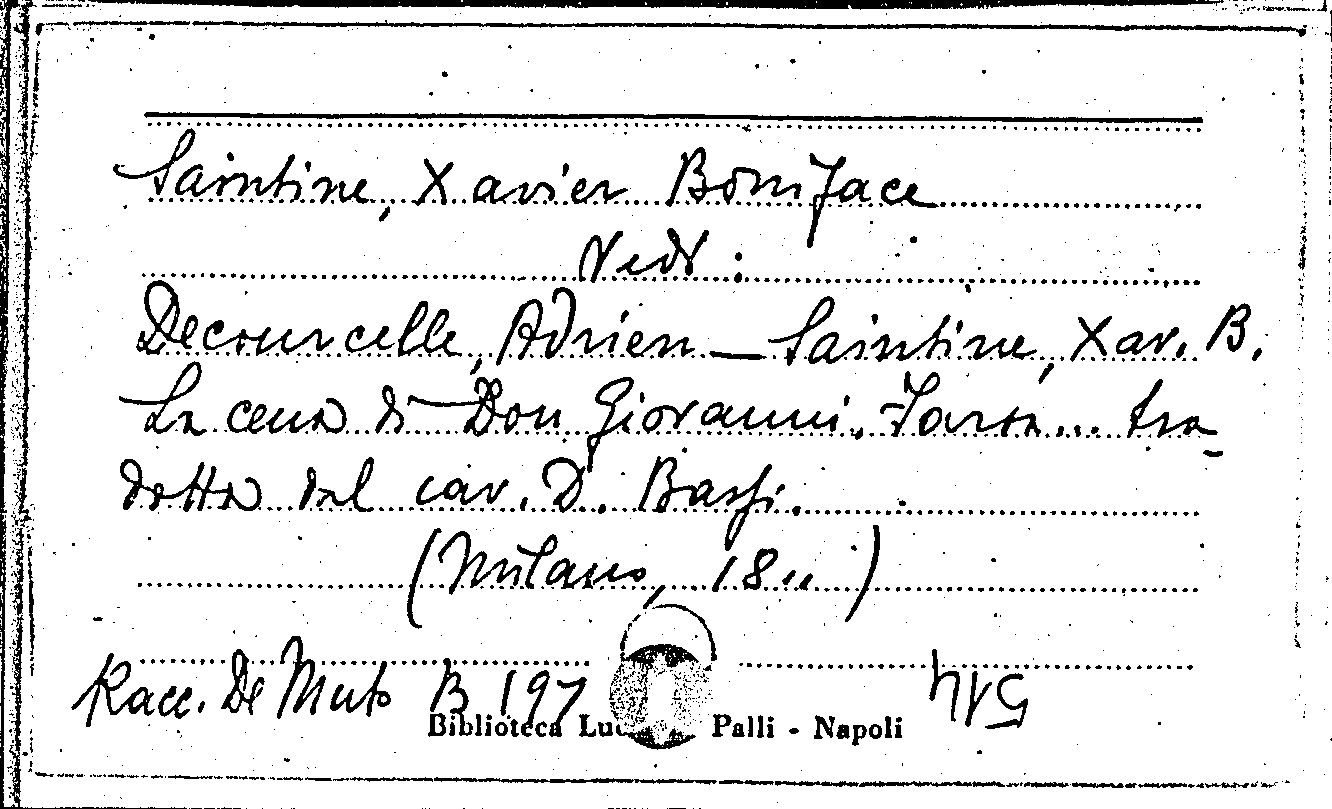 Saintine, Xavier Boniface
Vedi:
Decourcelle, Adrien - Saintine, Xav. B.
La cena di Don Giovanni. Farsa... tra-
dotta dal cav. D. Bassi.
(Milano, 18..)
Racc. De Muto B 197
Biblioteca Palli - Napoli